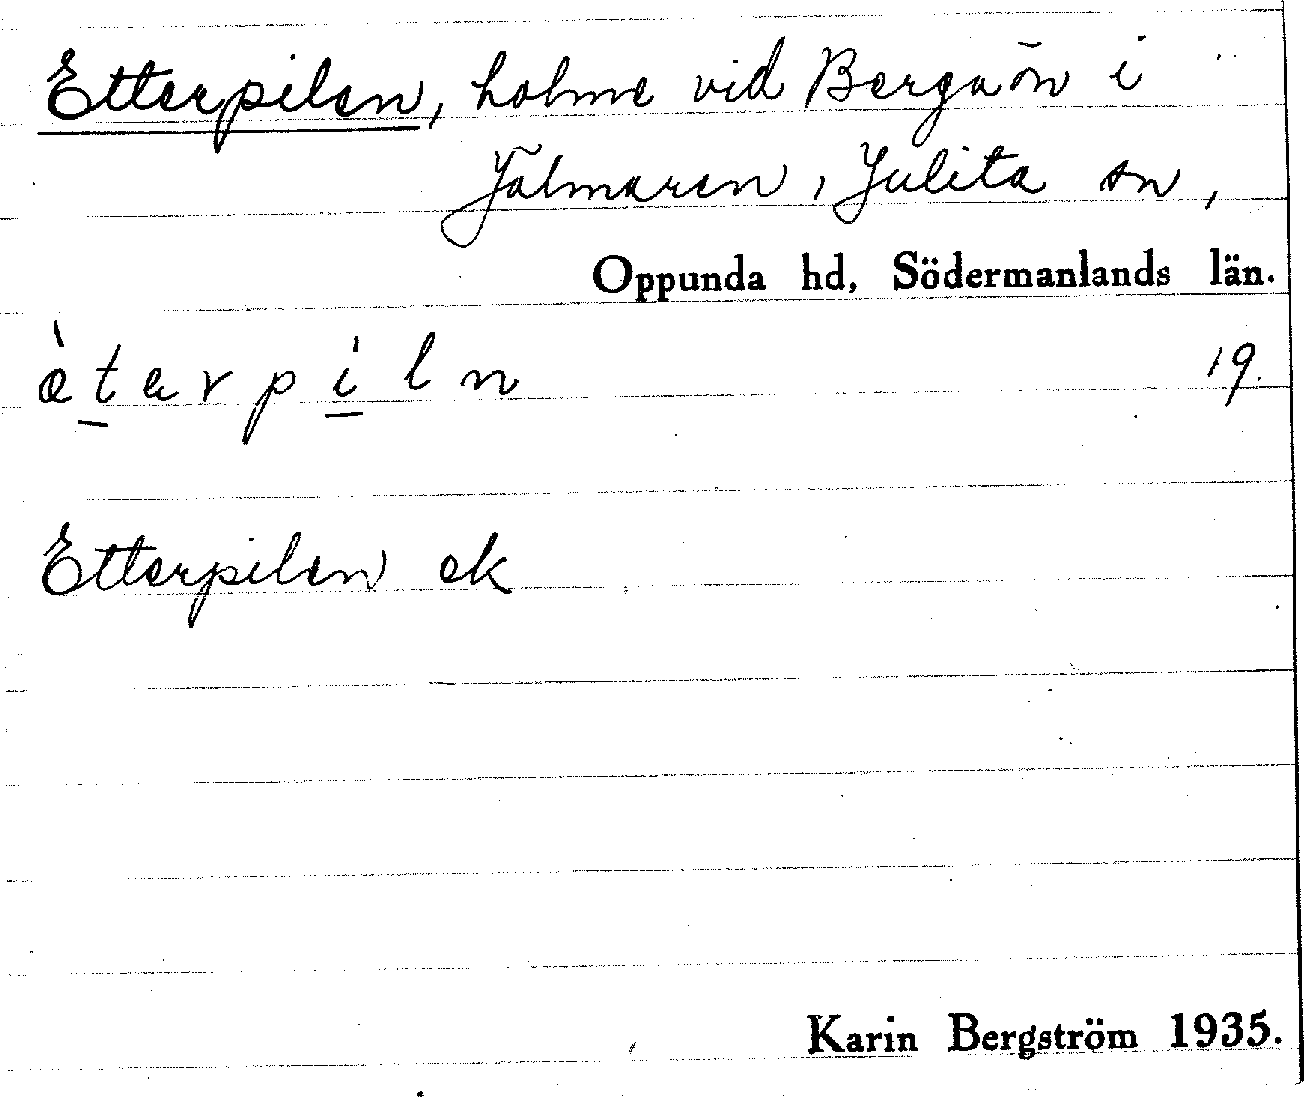 Etterpilen, holme vid Bergaön i
Jälmaren, Julita sn,
Oppunda hd, Södermanlands län.
19.
Etterpilen ek
Karin Bergström 1935.